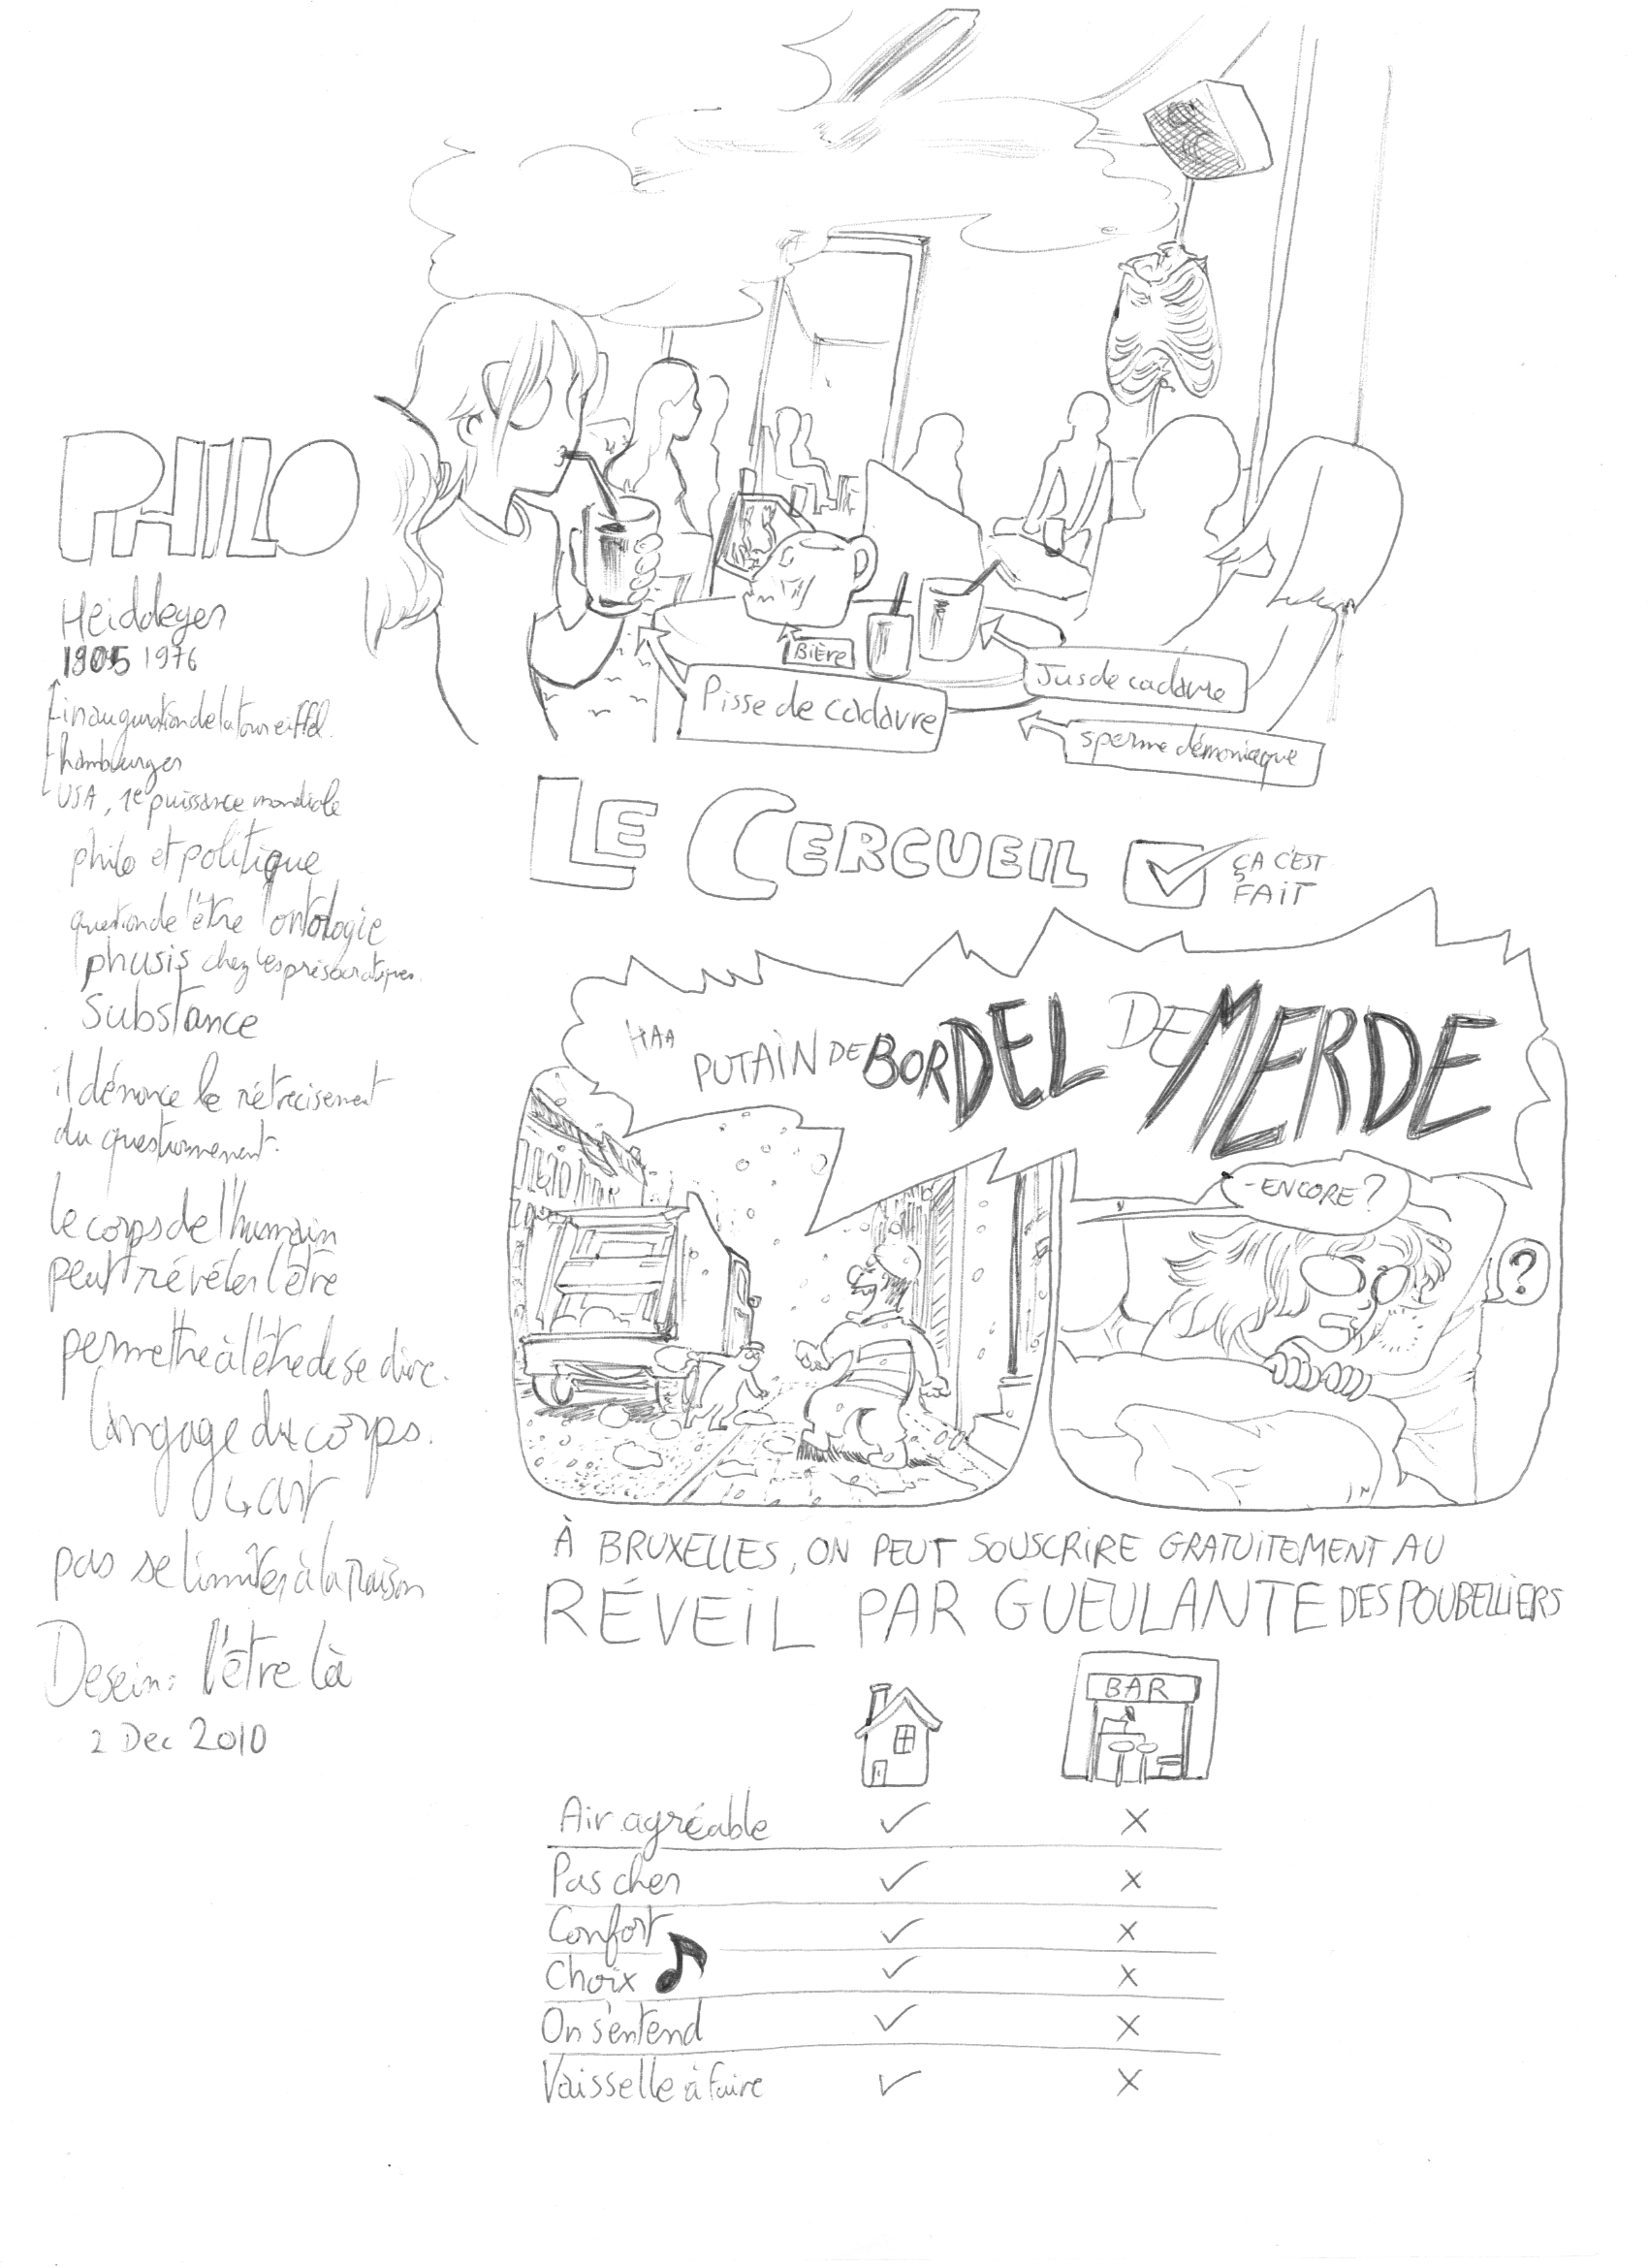 PHILO
Heiddeger
1905 1976
inauguration de la tour eiffel.
hamburger
USA, 1e puissance mondiale
philo et politique
question de l'être l'ontologie
phusis chez les présocratiques.
Substance
il dénonce le rétrecisement
du questionnement.
le corps de l'humain
peut révéler l'être
permettre à l'être de se dire.
langage du corps.
↳ art
pas se limiter à la raison
Desein: l'être là
2 Dec 2010
Bière
Pisse de cadavre
Jus de cadavre
sperme démoniaque
LE CERCUEIL
ÇA C'EST
FAIT
HAA PUTAIN DE BORDEL DE MERDE
-ENCORE?
?
À BRUXELLES, ON PEUT SOUSCRIRE GRATUITEMENT AU
RÉVEIL PAR GUEULANTE DES POUBELLIERS
BAR
Air agréable ✓ X
Pas cher ✓ X
Confort ✓ X
Choix ♪ ✓ X
On s'entend ✓ X
Vaisselle à faire ✓ X